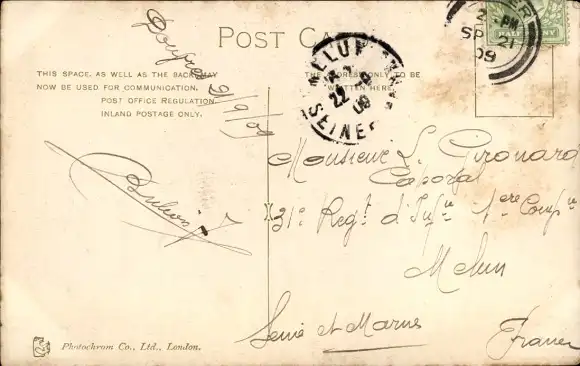 POST CA
THIS SPACE, AS WELL AS THE BACK MAY
NOW BE USED FOR COMMUNICATION.
POST OFFICE REGULATION.
INLAND POSTAGE ONLY.
TO BE
WRITTEN HERE
SP 21
09
PM
HALF
22
09
SEINE
/9/09
Monsieur L. Gironard
Caporal
31e Regt d'Infie 1ere Compie
Melun
Seine et Marne
France
Photochrom Co., Ltd., London.